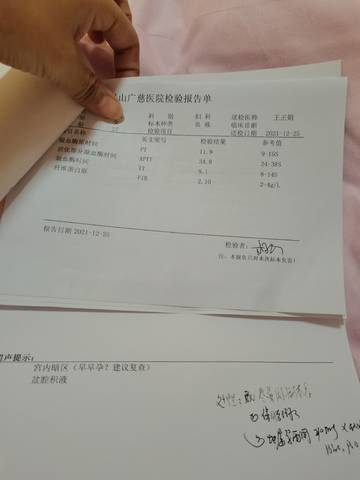 山广慈医院检验报告单
科 别 妇科 送检医师 王正娟
标本种类 血液 临床诊断
57 检验项目 送检日期 2021-12-25
项目名称 英文缩写 检验结果 参考值
凝血酶原时间 PT 11.9 9-15S
活化部分凝血酶时间 APTT 34.8 24-38S
凝血酶时间 TT 9.1 8-14S
纤维蛋白原 FIB 2.10 2-4g/L
报告日期 2021-12-25 检验者:
注:本报告只对本次标本负责!
超声提示:
宫内暗区(早早孕?建议复查)
盆腔积液